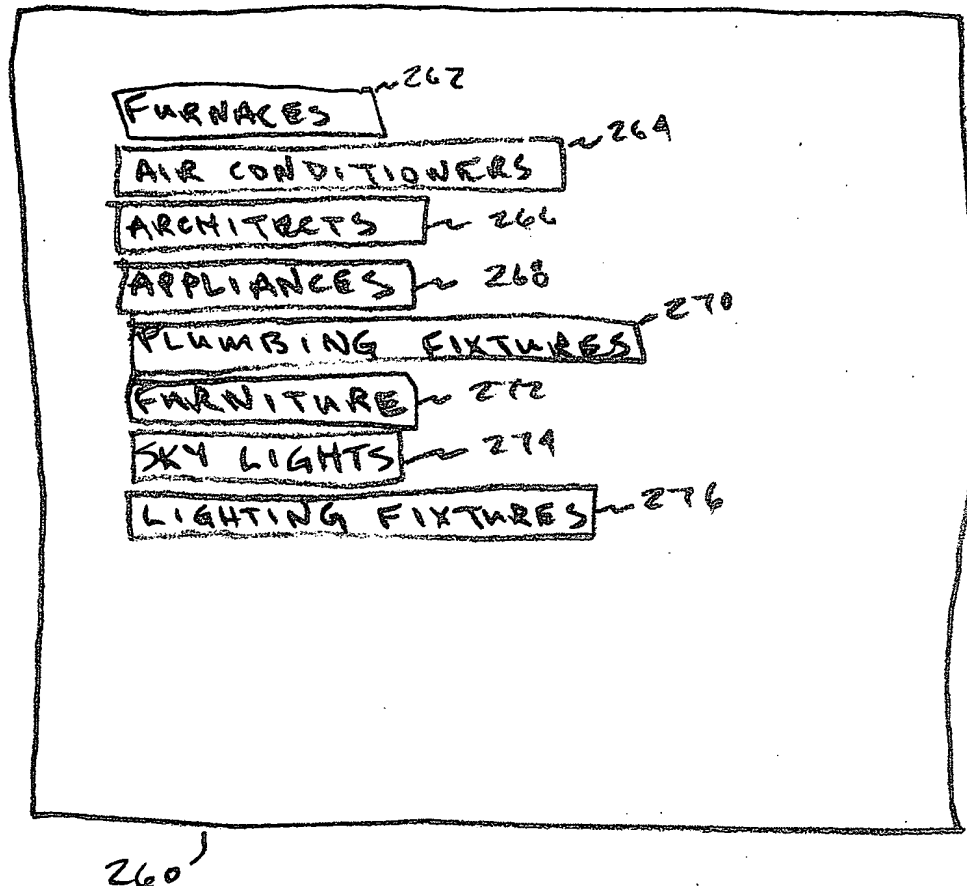 FURNACES 262
AIR CONDITIONERS 264
ARCHITECTS 266
APPLIANCES 268
PLUMBING FIXTURES 270
FURNITURE 272
SKY LIGHTS 274
LIGHTING FIXTURES 276
260